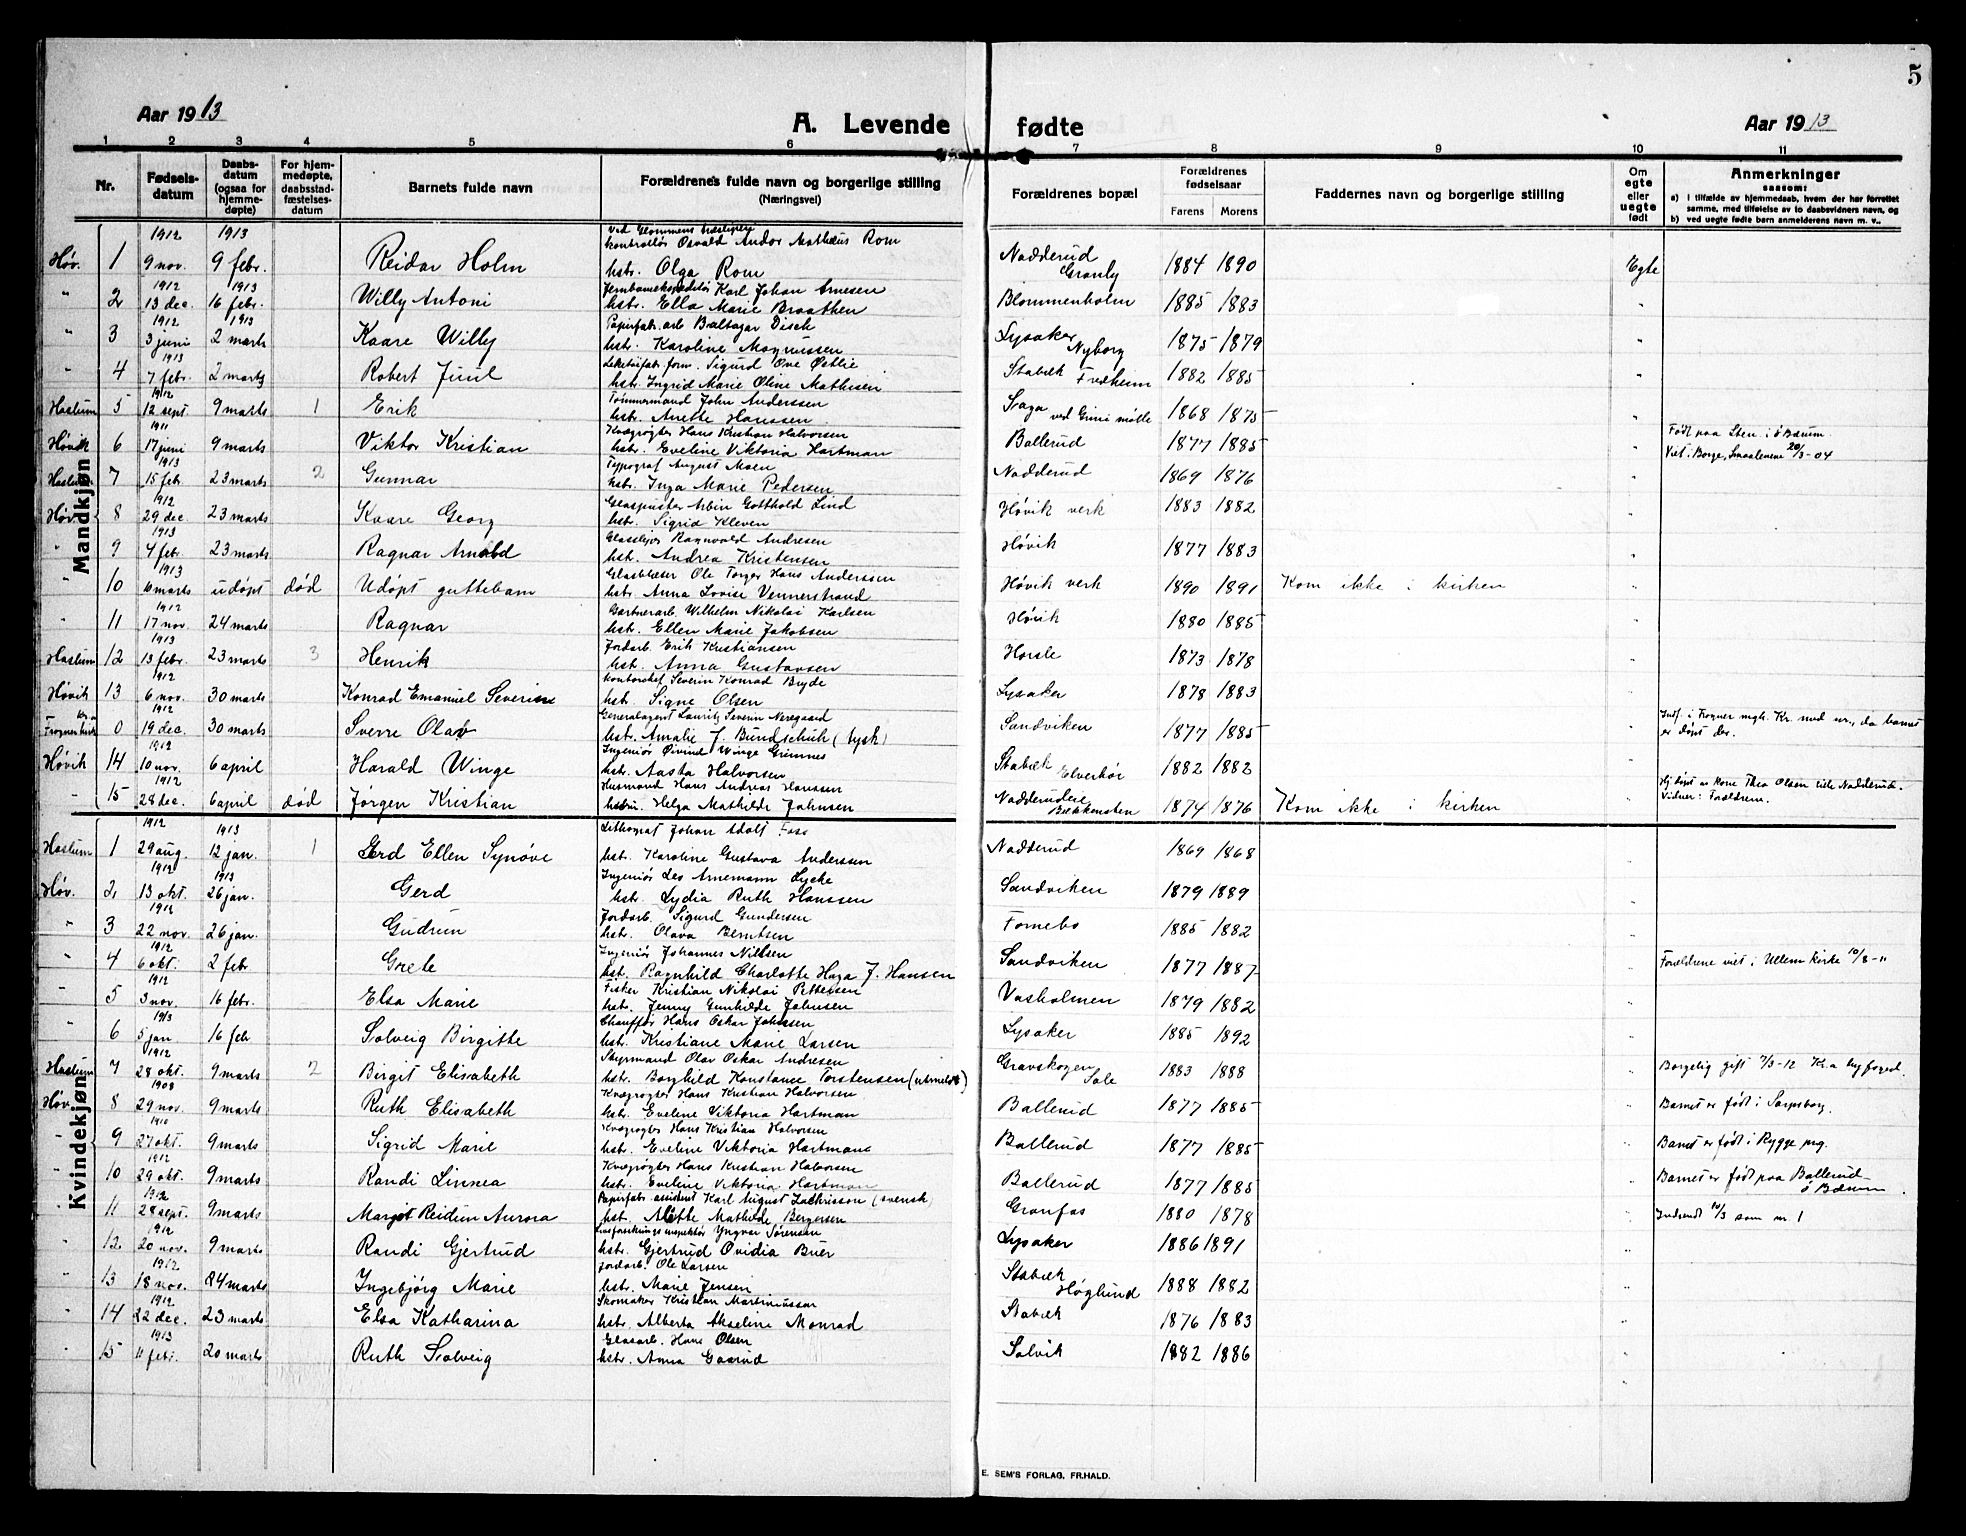 5
Aar 1913
A. Levende fødte
Aar 1913
1 2 3 4 5 6 7 8 9 10 11
Nr.
Fødselsdatum
Daabsdatum (ogsaa for hjemmedøpte)
For hjemmedøpte, daabsstadfæstelsesdatum
Barnets fulde navn
Forældrenes fulde navn og borgerlige stilling
(Næringsvei)
Forældrenes bopæl
Forældrenes fødselsaar
Farens Morens
Faddernes navn og borgerlige stilling
Om egte eller uegte født
Anmerkninger
saasom:
a) i tilfælde av hjemmedaab, hvem der har forrettet samme, med tilføielse av to daabsvidners navn, og
b) ved uegte fødte børn anmelderens navn m. v..
Mandkjøn
1912 1913 Ved Glommens
Høv. 1 9 nov. 9 febr. Reidar Holm kontrollør Osvald Andor Mathæus Rom
hstr. Olga Rom Nadderud Granly 1884 1890 Egte
1912 1913
" 2 13 dec. 16 febr. Willy Antoni Jernbaneekspeditør Karl Johan Arnesen
hstr. Ella Marie Braathen Blommenholm 1885 1883 "
1912 1913
" 3 3 juni 2 marts Kaare Willy Papirfab.arb Baltazar Disch
hstr. Karoline Magnussen Lysaker Nyborg 1875 1879 "
1913
" 4 7 febr. 2 marts Robert Juul Leketøifabr. form. Sigurd Ove Østlie
hstr. Ingrid Marie Oline Mathisen Stabæk Fredheim 1882 1885 "
1912
Haslum 5 12 sept. 9 marts 1 Erik Tømmermand John Anderssen
hstr. Anette Hanssen Staga ved Grini mølle 1868 1875 "
1911
Høvik 6 17 juni 9 marts Viktor Kristian Kvægrøgter Hans Kristian Halvorsen
hstr. Eveline Viktoria Hartman Ballerud 1877 1885 " Født paa Sten i Ø Bærum.
Viet i Borge, Smaalenene 20/3-04
1913
Haslum 7 15 febr. 23 marts 2 Gunnar Typograf August Moen
hstr. Inga Marie Pedersen Nadderud 1869 1876 "
1912
Høv. 8 29 dec. 23 marts Kaare Georg Glaspuster Arbin Gotthold Lind
hstr. Sigrid Kleven Høvik verk 1883 1882 "
1913
" 9 4 febr. 23 marts Ragnar Arnold Glassliper Ragnvald Andresen
hstr. Andrea Kristensen Høvik 1877 1883 "
1913
" 10 6 marts udøpt død Udøpt guttebarn Glasblæser Ole Torger Hans Anderssen
hstr. Anna Lovise Vennerstrand Høvik verk 1890 1891 Kom ikke i kirken "
1912
" 11 17 nov. 24 marts Ragnar Gartnerarb. Wilhelm Nikolai Karlsen
hstr. Ellen Marie Jakobsen Høvik 1880 1885 "
1913
Haslum 12 13 febr. 23 marts 3 Henrik Jordarb. Erik Kristiansen
hstr. Anna Gustavsen Horsle 1873 1878 "
1912
Høvik 13 6 nov. 30 marts Konrad Emanuel Severin Kontorchef Severin Konrad Bryde
hstr. Signe Olsen Lysaker 1878 1883 "
1912
Frogner kirk Kr.a 0 19 dec. 30 marts Sverre Olav Generalagent Lauritz Severin Neregaard
hstr. Amalie f. Bundschuh (tysk) Sandviken 1877 1885 " Indf. i Frogner mgh. Kr. med nr., da barnet
er døpt der.
1912
Høvik 14 10 nov. 6 april Harald Winge Ingeniør Øivind Winge Grimnes
hstr. Aasta Halvorsen Stabæk Elverhøi 1882 1882 "
1912
" 15 28 dec. 6 april død Jørgen Kristian Husmand Hans Andreas Hanssen
hstru. Helga Mathilde Johnsen Nadderud eie Bækkensten 1874 1876 Kom ikke i kirken " Hj.døpt av Kone Thea Olsen lille Nadderud.
Vidner: Forældrene.
Kvindekjøn
1912 1913
Haslum 1 29 aug. 12 jan. 1 Gerd Ellen Synøve Lithograf Johan Adolf Foss
hstr. Karoline Gustava Anderssen Nadderud 1869 1868 "
1912 1913
Høv. 2 13 okt. 26 jan. Gerd Ingeniør Leo Arnemann Lycke
hstr. Lydia Ruth Hanssen Sandviken 1879 1889 "
1912
" 3 22 nov. 26 jan. Gudrun Jordarb. Sigurd Gundersen
hstr. Olava Berntsen Fornebo 1885 1882 "
1912
" 4 6 okt. 2 febr Grete Ingeniør Johannes Nielsen
hst. Ragnhild Charlotte Haga f. Hansen Sandviken 1877 1887 " Forældrene viet i Ullern kirke 10/8-11
1912
" 5 3 nov. 16 febr. Elsa Marie Fisker Kristian Nikolai Pettersen
hstr. Jenny Gunhilde Johnsen Vasholmen 1879 1882 "
1913
" 6 5 jan 16 feb Solveig Birgitte Chauffør Hans Oskar Johnssen
hstr. Kristiane Marie Larsen Lysaker 1885 1892 "
1912
Haslum 7 28 okt. 9 marts 2 Birgit Elisabeth Styrmand Olav Oskar Andresen
hstr. Borghild Konstance Torstensen (utmeldt) Gravskogen Sole 1883 1888 " Borgelig gift 7/3-12 Kr.a byfoged.
1908
Høv. 8 29 nov. 9 marts Ruth Elisabeth Kvægrøgter Hans Kristian Halvorsen
hstr. Eveline Viktoria Hartman Ballerud 1877 1885 " Barnet er født i Sarpsborg.
1910
" 9 27 okt. 9 marts Sigrid Marie Kvægrøgter Hans Kristian Halvorsen
hstr. Eveline Viktoria Hartmann Ballerud 1877 1885 " Barnet er født i Rygge prg.
1912
" 10 29 okt. 9 marts Randi Linnea Kvægrøgter Hans Kristian Halvorsen
hstr. Eveline Viktoria Hartman Ballerud 1877 1885 " Barnet er født paa Ballerud
Ø Bærum
1912
" 11 28 sept. 9 marts Margot Reidun Aurora Papirfabr. assistent Karl August Zachrisson (svensk)
hst. Alette Mathilde Bergersen Granfos 1880 1878 " Indsendt 10/3 som nr 1
1912
" 12 20 nov. 9 marts Randi Gjertrud Livsforsikringsinspektør Yngvar Sørensen
hstr. Gjertrud Ovidia Buer Lysaker 1886 1891 "
1912
" 13 18 nov. 24 marts Ingebjørg Marie Jordarb. Ole Larsen
hstr. Marie Jensen Stabæk Høglund 1888 1882 "
1912
" 14 22 dec. 23 marts Elsa Katharina Skomaker Kristian Martiniussen
hstr. Alberta Akseline Monrad Stabæk 1876 1883 "
1913
" 15 11 febr. 20 marts Ruth Solveig Glasarb. Hans Olsen
hstr. Anna Gaarud Solvik 1882 1886 "
E. SEM'S FORLAG, FR.HALD.